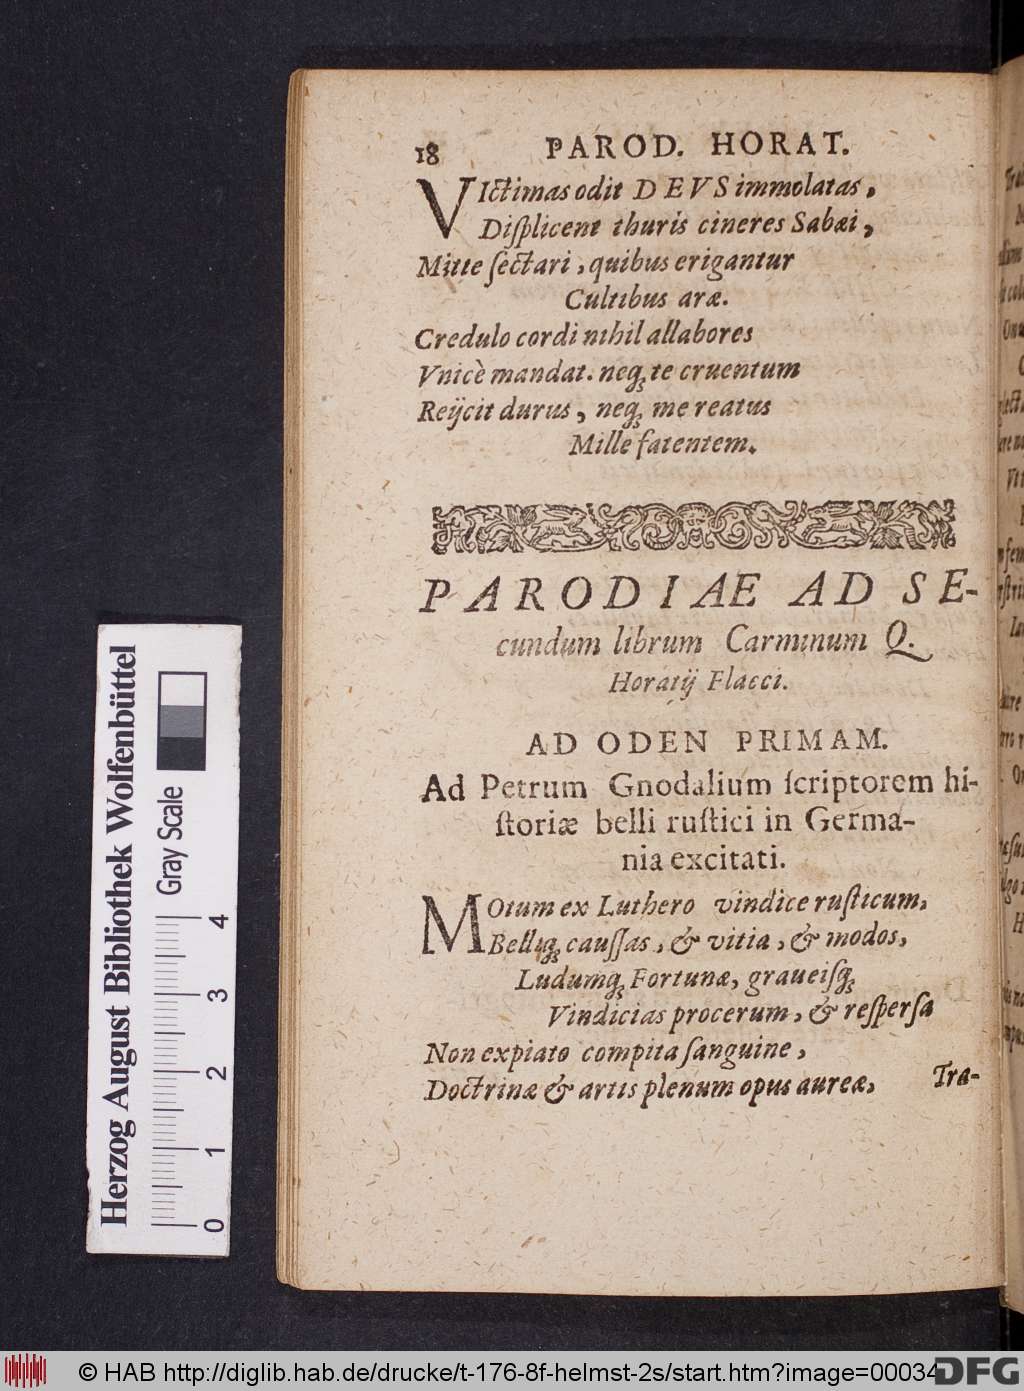 18 PAROD. HORAT.
VIctimas odit DEVS immolatas,
Diſplicent thuris cineres Sabæi,
Mitte ſectari, quibus erigantur
Cultibus aræ.
Credulo cordi nihil allabores
Vnicè mandat. neq́; te cruentum
Reijcit durus, neq́; me reatus
Mille fatentem.
PARODIAE AD SE-
cundum librum Carminum Q.
Horatij Flacci.
AD ODEN PRIMAM.
Ad Petrum Gnodalium ſcriptorem hi-
ſtoriæ belli ruſtici in Germa-
nia excitati.
MOtum ex Luthero vindice ruſticum,
Belliq́; cauſſas, & vitia, & modos,
Ludumq́; Fortunæ, graueiſq́;
Vindicias procerum, & reſperſa
Non expiato compita ſanguine,
Doctrinæ & artis plenum opus aureæ,
Tra-
Herzog August Bibliothek Wolfenbüttel
Gray Scale
0 1 2 3 4
© HAB http://diglib.hab.de/drucke/t-176-8f-helmst-2s/start.htm?image=00034
DFG